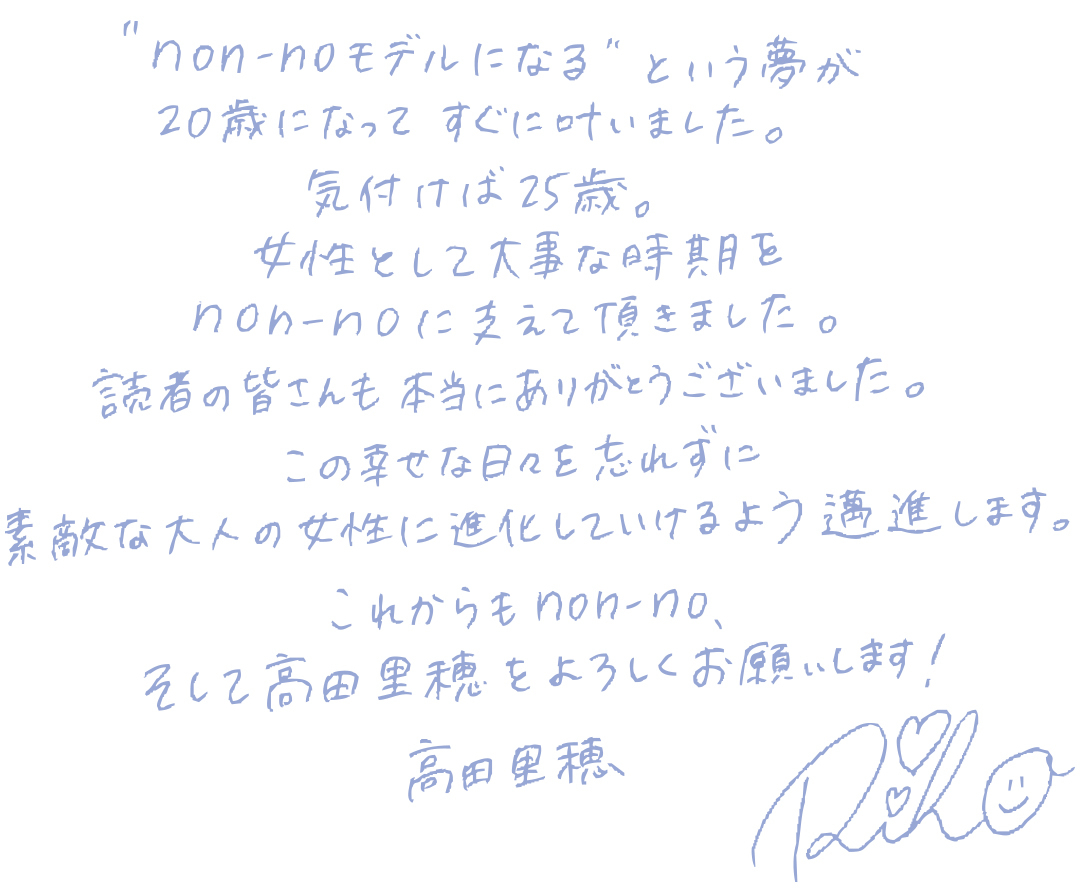 "non-noモデルになる"という夢が
20歳になって すぐに叶いました。
気付けば25歳。
女性として大事な時期を
non-noに支えて頂きました。
読者の皆さんも 本当にありがとうございました。
この幸せな日々を忘れずに
素敵な大人の女性に進化していけるよう邁進します。
これからもnon-no、
そして高田里穂をよろしくお願いします!
高田里穂
Riho